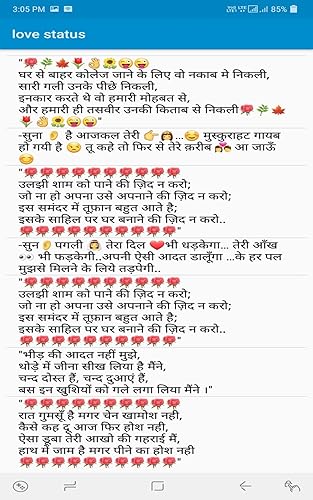 3:05 PM
85%
love status
"🌹🌿🍁🌷👌🌻😜😜
घर से बाहर कोलेज जाने के लिए वो नकाब मे निकली,
सारी गली उनके पीछे निकली,
इनकार करते थे वो हमारी मोहबत से,
और हमारी ही तसवीर उनकी किताब से निकली🌹🌿🍁
🌷👌🌻😜😜"
-सुना 👂 है आजकल तेरी 👉👩...😊 मुस्कुराहट गायब
हो गयी है 😒 तू कहे तो फिर से तेरे क़रीब 💑 आ जाऊँ
😏
"🌹🌹🌹🌹🌹🌹🌹🌹🌹🌹
उलझी शाम को पाने की ज़िद न करो;
जो ना हो अपना उसे अपनाने की ज़िद न करो;
इस समंदर में तूफ़ान बहुत आते है;
इसके साहिल पर घर बनाने की ज़िद न करो..
🌹🌹🌹🌹🌹🌹🌹🌹🌹🌹"
-सुन👂पगली 👩 तेरा दिल ❤भी धड़केगा... तेरी आँख
👀 भी फड़केगी..अपनी ऐसी आदत डालूँगा ...के हर पल
मुझसे मिलने के लिये तड़पेगी..
"🌹🌹🌹🌹🌹🌹🌹🌹🌹🌹
उलझी शाम को पाने की ज़िद न करो;
जो ना हो अपना उसे अपनाने की ज़िद न करो;
इस समंदर में तूफ़ान बहुत आते है;
इसके साहिल पर घर बनाने की ज़िद न करो..
🌹🌹🌹🌹🌹🌹🌹🌹🌹🌹"
"भीड़ की आदत नहीं मुझे,
थोड़े में जीना सीख लिया है मैंने,
चन्द दोस्त हैं, चन्द दुआएं हैं,
बस इन खुशियों को गले लगा लिया मैंने ।"
"🌹🌹🌹🌹🌹🌹🌹🌹🌹🌹
रात गुमसूँ है मगर चेन खामोश नही,
कैसे कह दू आज फिर होश नही,
ऐसा डूबा तेरी आखो की गहराई मैं,
हाथ में जाम है मगर पीने का होश नही
🌹🌹🌹🌹🌹🌹🌹🌹🌹🌹"